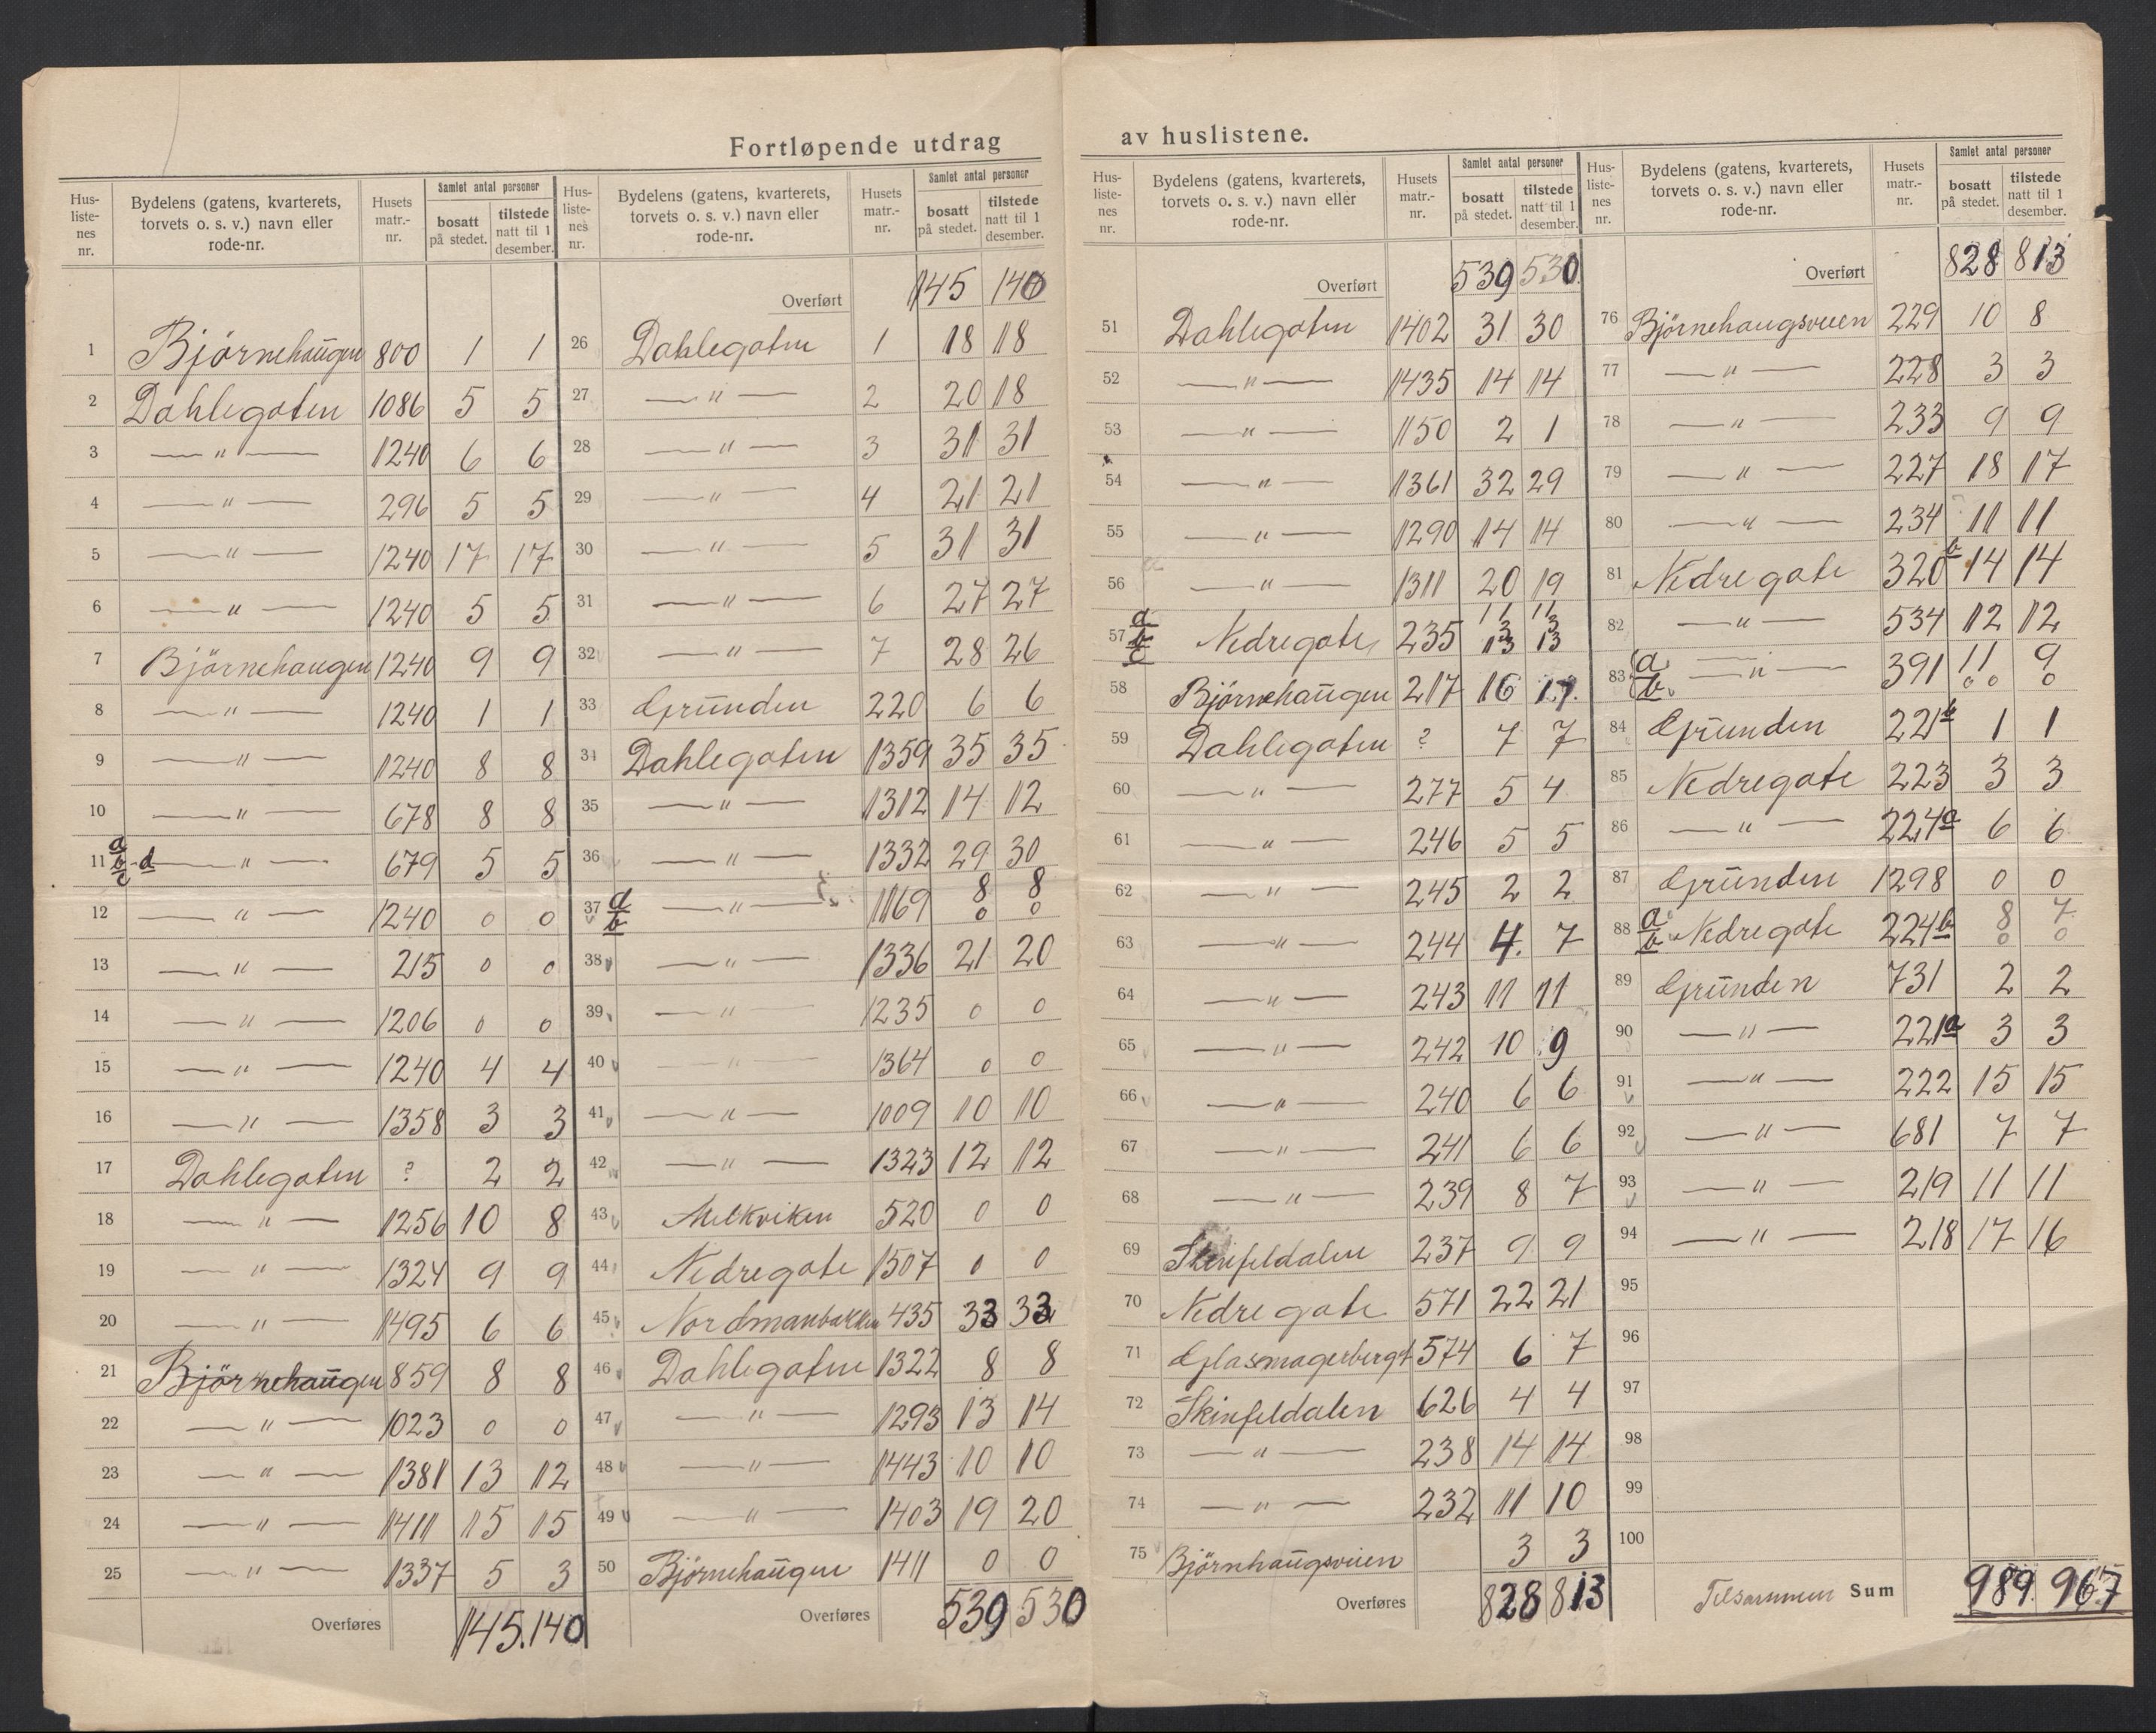 Fortløpende utdrag av huslistene.
Hus-listenes nr. | Bydelens (gatens, kvarterets, torvets o. s. v.) navn eller rode-nr. | Husets matr.-nr. | Samlet antal personer bosatt på stedet. | tilstede natt til 1 desember.
1 Björnehaugen 800 1 1
2 Dahlegaten 1086 5 5
3 — " — 1240 6 6
4 — " — 296 5 5
5 — " — 1240 17 17
6 — " — 1240 5 5
7 Björnehaugen 1240 9 9
8 — " — 1240 1 1
9 — " — 1240 8 8
10 — " — 678 8 8
11 a b c - d — " — 679 5 5
12 — " — 1240 0 0
13 — " — 215 0 0
14 — " — 1206 0 0
15 — " — 1240 4 4
16 — " — 1358 3 3
17 Dahlegaten ? 2 2
18 — " — 1256 10 8
19 — " — 1324 9 9
20 — " — 1495 6 6
21 Björnehaugen 859 8 8
22 — " — 1023 0 0
23 — " — 1381 13 12
24 — " — 1411 15 15
25 — " — 1337 5 3
Overføres 145. 140
Hus-listenes nr. | Bydelens (gatens, kvarterets, torvets o. s. v.) navn eller rode-nr. | Husets matr.-nr. | Samlet antal personer bosatt på stedet. | tilstede natt til 1 desember.
Overført 145 140
26 Dahlegaten 1 18 18
27 — " — 2 20 18
28 — " — 3 31 31
29 — " — 4 21 21
30 — " — 5 31 31
31 — " — 6 27 27
32 — " — 7 28 26
33 Gründen 220 6 6
34 Dahlegaten 1359 35 35
35 — " — 1312 14 12
36 — " — 1332 29 30
37 a b — " — 1169 8 8 0 0
38 — " — 1336 21 20
39 — " — 1235 0 0
40 — " — 1364 0 0
41 — " — 1009 10 10
42 — " — 1323 12 12
43 Melkviken 520 0 0
44 Nedregate 1507 0 0
45 Nordmanbakken 435 33 33
46 Dahlegaten 1322 8 8
47 — " — 1293 13 14
48 — " — 1443 10 10
49 — " — 1403 19 20
50 Björnehaugen 1411 0 0
Overføres 539 530
Hus-listenes nr. | Bydelens (gatens, kvarterets, torvets o. s. v.) navn eller rode-nr. | Husets matr.-nr. | Samlet antal personer bosatt på stedet. | tilstede natt til 1 desember.
Overført 539 530.
51 Dahlegaten 1402 31 30
52 — " — 1435 14 14
53 — " — 1150 2 1
54 — " — 1361 32 29
55 — " — 1290 14 14
56 — " — 1311 20 19
57 a b c Nedregate 235 11 11 3 3 13 13
58 Björnehaugen 217 16 17.
59 Dahlegaten ? 7 7
60 — " — 277 5 4
61 — " — 246 5 5
62 — " — 245 2 2
63 — " — 244 4. 7
64 — " — 243 11 11
65 — " — 242 10 9
66 — " — 240 6 6
67 — " — 241 6 6
68 — " — 239 8 7
69 Skinfeldalen 237 9 9
70 Nedregate 571 22 21
71 Glasmagerbergt 574 6 7
72 Skinfeldalen 626 4 4
73 — " — 238 14 14
74 — " — 232 11 10
75 Björnehaugsveien 3 3
Overføres 828 813
Hus-listenes nr. | Bydelens (gatens, kvarterets, torvets o. s. v.) navn eller rode-nr. | Husets matr.-nr. | Samlet antal personer bosatt på stedet. | tilstede natt til 1 desember.
Overført 828 813
76 Björnehaugsveien 229 10 8
77 — " — 228 3 3
78 — " — 233 9 9
79 — " — 227 18 17
80 — " — 234 11 11
81 Nedregate 320b 14 14
82 — " — 534 12 12
83 a b — " — 391 11 9 0 0
84 Gründen 221b 1 1
85 Nedregate 223 3 3
86 — " — 224a 6 6
87 Gründen 1298 0 0
88 a b Nedregate 224b 8 7 0 0
89 Gründen 731 2 2
90 — " — 221a 3 3
91 — " — 222 15 15
92 — " — 681 7 7
93 — " — 219 11 11
94 — " — 218 17 16
95
96
97
98
99
100
Tilsammen Sum 989. 967